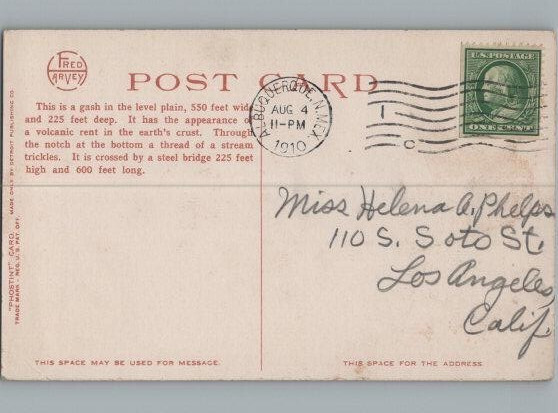 FRED
HARVEY
POST CARD
This is a gash in the level plain, 550 feet wide
and 225 feet deep. It has the appearance of
a volcanic rent in the earth's crust. Through
the notch at the bottom a thread of a stream
trickles. It is crossed by a steel bridge 225 feet
high and 600 feet long.
ALBUQUERQUE, N. MEX.
AUG 4
11-PM
1910
1
U.S. POSTAGE
ONE CENT
Miss Helena A. Phelps
110 S. Soto St.
Los Angeles,
Calif.
"PHOSTINT" CARD
MADE ONLY BY DETROIT PUBLISHING CO.
TRADE MARK - REG. U. S. PAT. OFF.
THIS SPACE MAY BE USED FOR MESSAGE.
THIS SPACE FOR THE ADDRESS